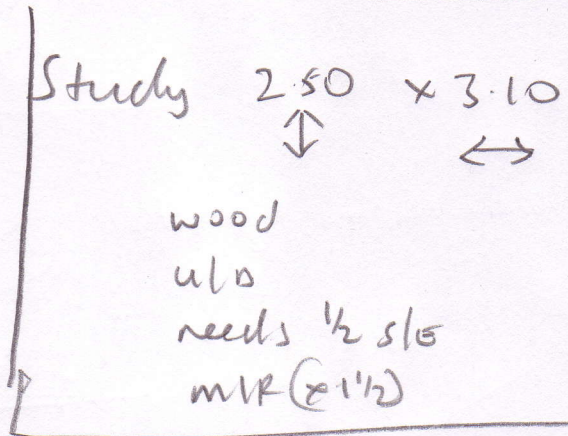 Study 2.50 x 3.10
wood
u/D
needs 1/2 s/E
m/R (x 1 1/2)